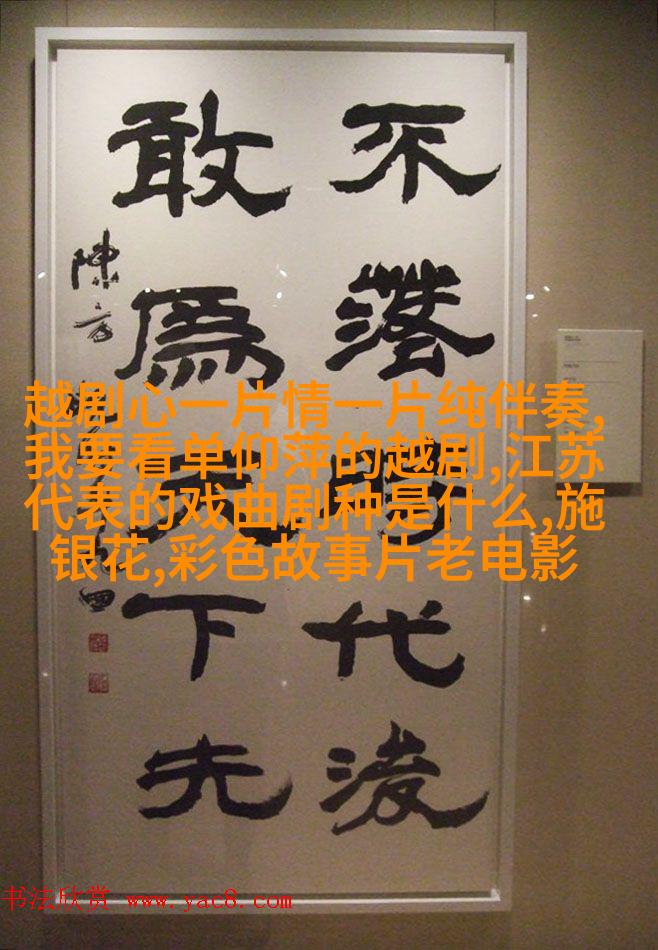 不落時代後
敢爲天下先
越剧心一片情一片纯伴奏,
我要看单仰萍的越剧,江苏
代表的戏曲剧种是什么,施
银花,彩色故事片老电影
书法欣赏 www.yac8.com